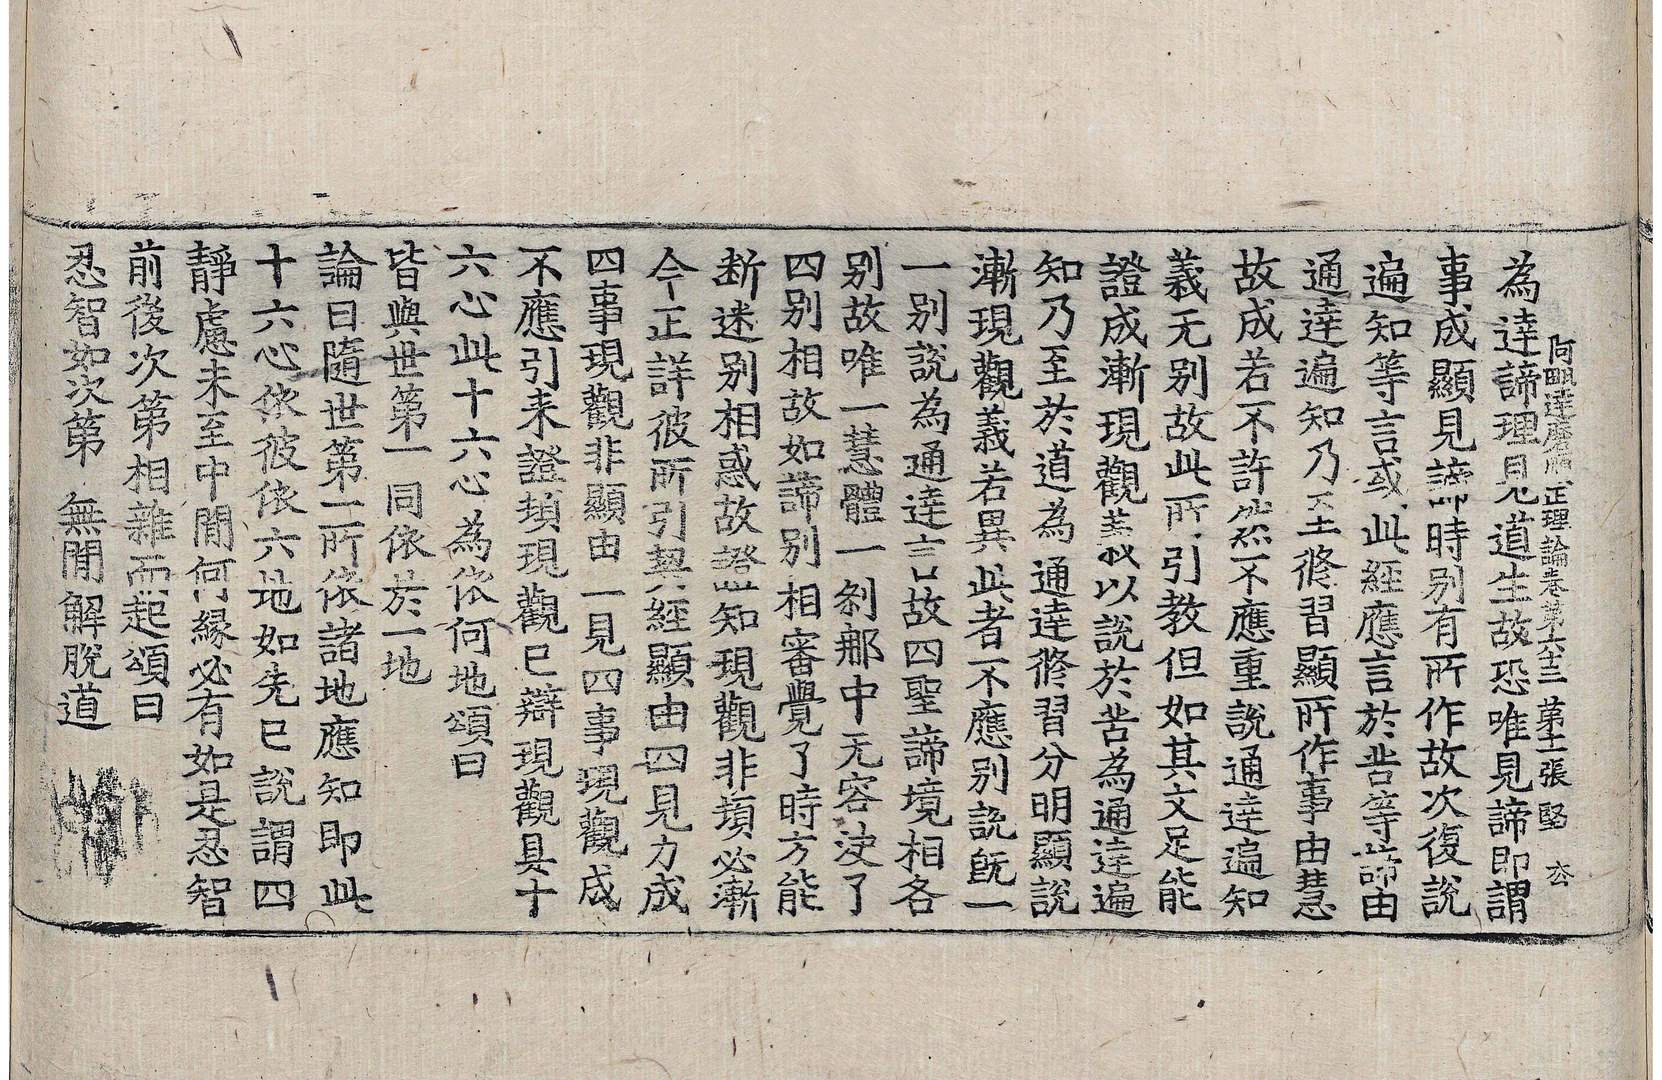 阿毗達磨順正理論卷第六十三 第十一張 堅 玄
為達諦理見道生故恐唯見諦即謂
事成顯見諦時別有所作故次復說
遍知等言或此經應言於苦等諦由
通達遍知乃至修習顯所作事由慧
故成若不許然不應重說通達遍知
義无別故此所引教但如其文足能
證成漸現觀義我以說於苦為通達遍
知乃至於道為通達修習分明顯說
漸現觀義若異此者不應別說既一
一別說為通達言故四聖諦境相各
別故唯一慧體一剎那中无容决了
四別相故如諦別相審覺了時方能
断迷別相惑故證知現觀非頓必漸
今正詳彼所引契經顯由四見方成
四事現觀非顯由一見四事現觀成
不應引来證頓現觀已辯現觀具十
六心此十六心為依何地頌曰
皆與世第一同依於一地
論曰隨世第一所依諸地應知即此
十六心依彼依六地如先已說謂四
靜慮未至中間何緣必有如是忍智
前後次第相雜而起頌曰
忍智如次第 無間解脫道